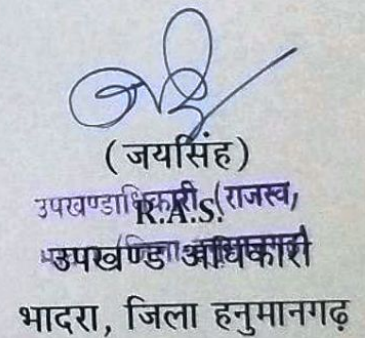 (जयसिंह)
उपखण्डाधिकारी (राजस्व)
R.A.S.
उपखण्ड अधिकारी
भादरा, जिला हनुमानगढ़